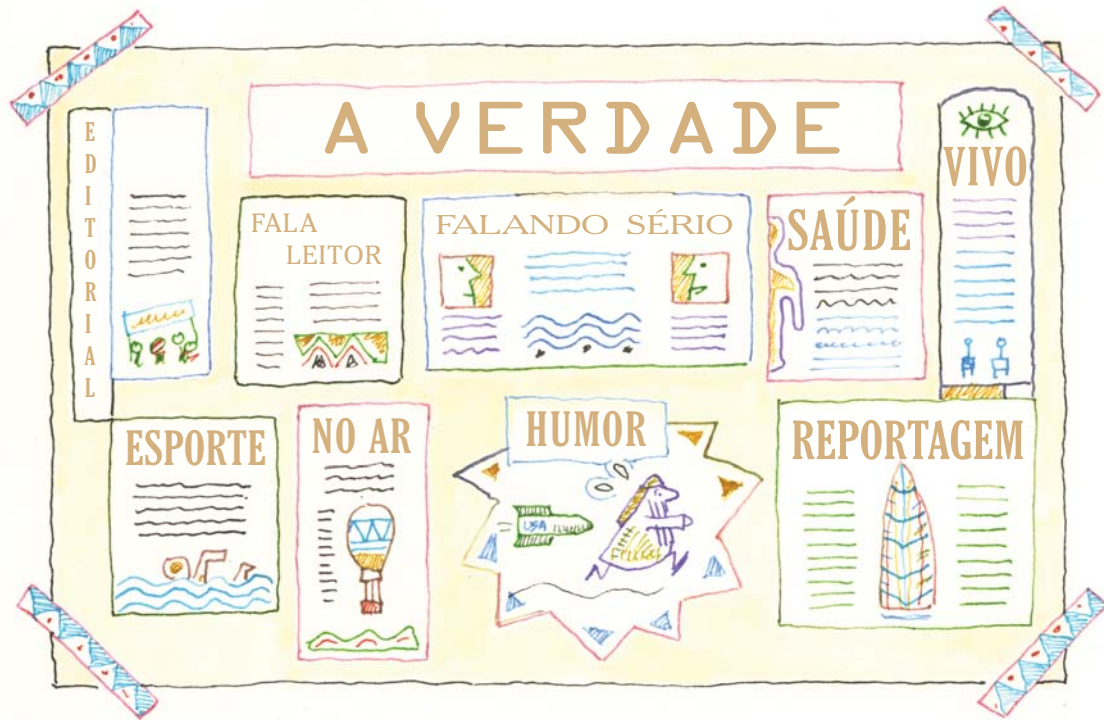 A VERDADE
EDITORIAL
FALA
LEITOR
FALANDO SÉRIO
SAÚDE
VIVO
ESPORTE
NO AR
HUMOR
USA
REPORTAGEM